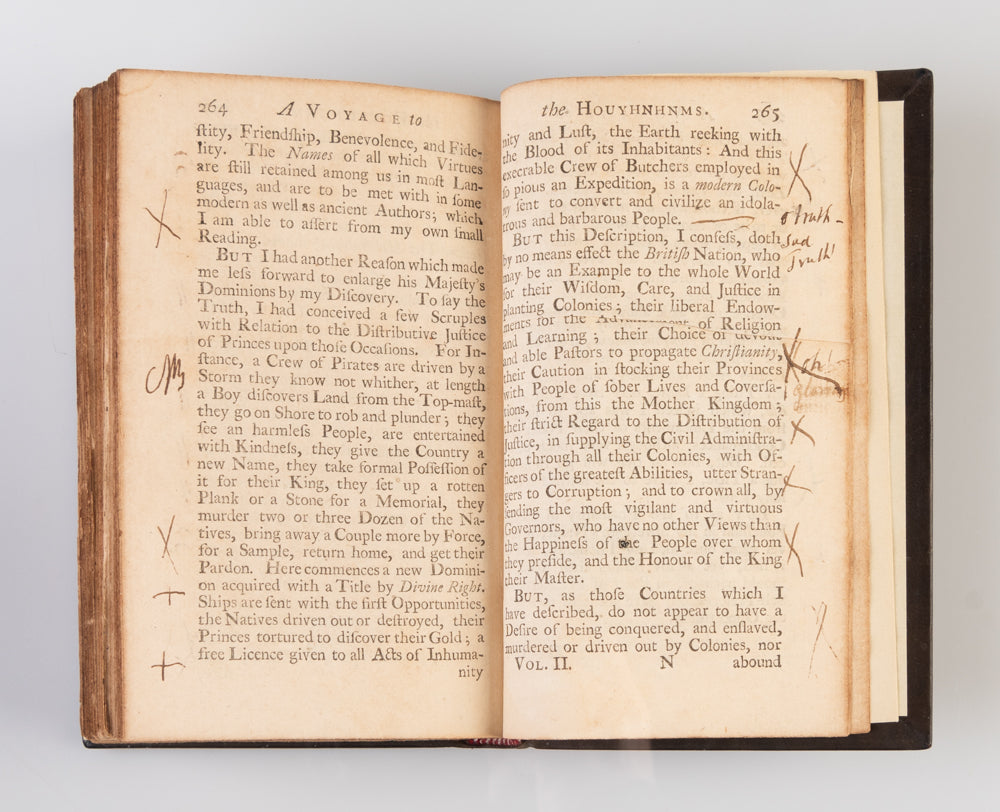 264 A VOYAGE to
ſtity, Friendſhip, Benevolence, and Fide-
lity. The Names of all which Virtues
are ſtill retained among us in moſt Lan-
guages, and are to be met with in ſome
modern as well as ancient Authors; which
I am able to aſſert from my own ſmall
Reading.
BUT I had another Reaſon which made
me leſs forward to enlarge his Majeſty's
Dominions by my Diſcovery. To ſay the
Truth, I had conceived a few Scruples
with Relation to the Diſtributive Juſtice
of Princes upon thoſe Occaſions. For In-
ſtance, a Crew of Pirates are driven by a
Storm they know not whither, at length
a Boy diſcovers Land from the Top-maſt,
they go on Shore to rob and plunder; they
ſee an harmleſs People, are entertained
with Kindneſs, they give the Country a
new Name, they take formal Poſſeſſion of
it for their King, they ſet up a rotten
Plank or a Stone for a Memorial, they
murder two or three Dozen of the Na-
tives, bring away a Couple more by Force,
for a Sample, return home, and get their
Pardon. Here commences a new Domini-
on acquired with a Title by Divine Right.
Ships are ſent with the firſt Opportunities,
the Natives driven out or deſtroyed, their
Princes tortured to diſcover their Gold; a
free Licence given to all Acts of Inhuma-
nity
the HOUYHNHNMS. 265
nity and Luſt, the Earth reeking with
the Blood of its Inhabitants: And this
execrable Crew of Butchers employed in
ſo pious an Expedition, is a modern Colo-
ny ſent to convert and civilize an idola-
trous and barbarous People.
BUT this Deſcription, I confeſs, doth
by no means effect the Britiſh Nation, who
may be an Example to the whole World
for their Wiſdom, Care, and Juſtice in
planting Colonies; their liberal Endow-
ments for the of Religion
and Learning; their Choice of devout
and able Paſtors to propagate Chriſtianity,
their Caution in ſtocking their Provinces
with People of ſober Lives and Coverſa-
tions, from this the Mother Kingdom;
their ſtrict Regard to the Diſtribution of
Juſtice, in ſupplying the Civil Adminiſtra-
tion through all their Colonies, with Of-
ficers of the greateſt Abilities, utter Stran-
gers to Corruption; and to crown all, by
ſending the moſt vigilant and virtuous
Governors, who have no other Views than
the Happineſs of the People over whom
they preſide, and the Honour of the King
their Maſter.
BUT, as thoſe Countries which I
have deſcribed, do not appear to have a
Deſire of being conquered, and enſlaved,
murdered or driven out by Colonies, nor
VOL. II. N abound
truth
sad
Truth!